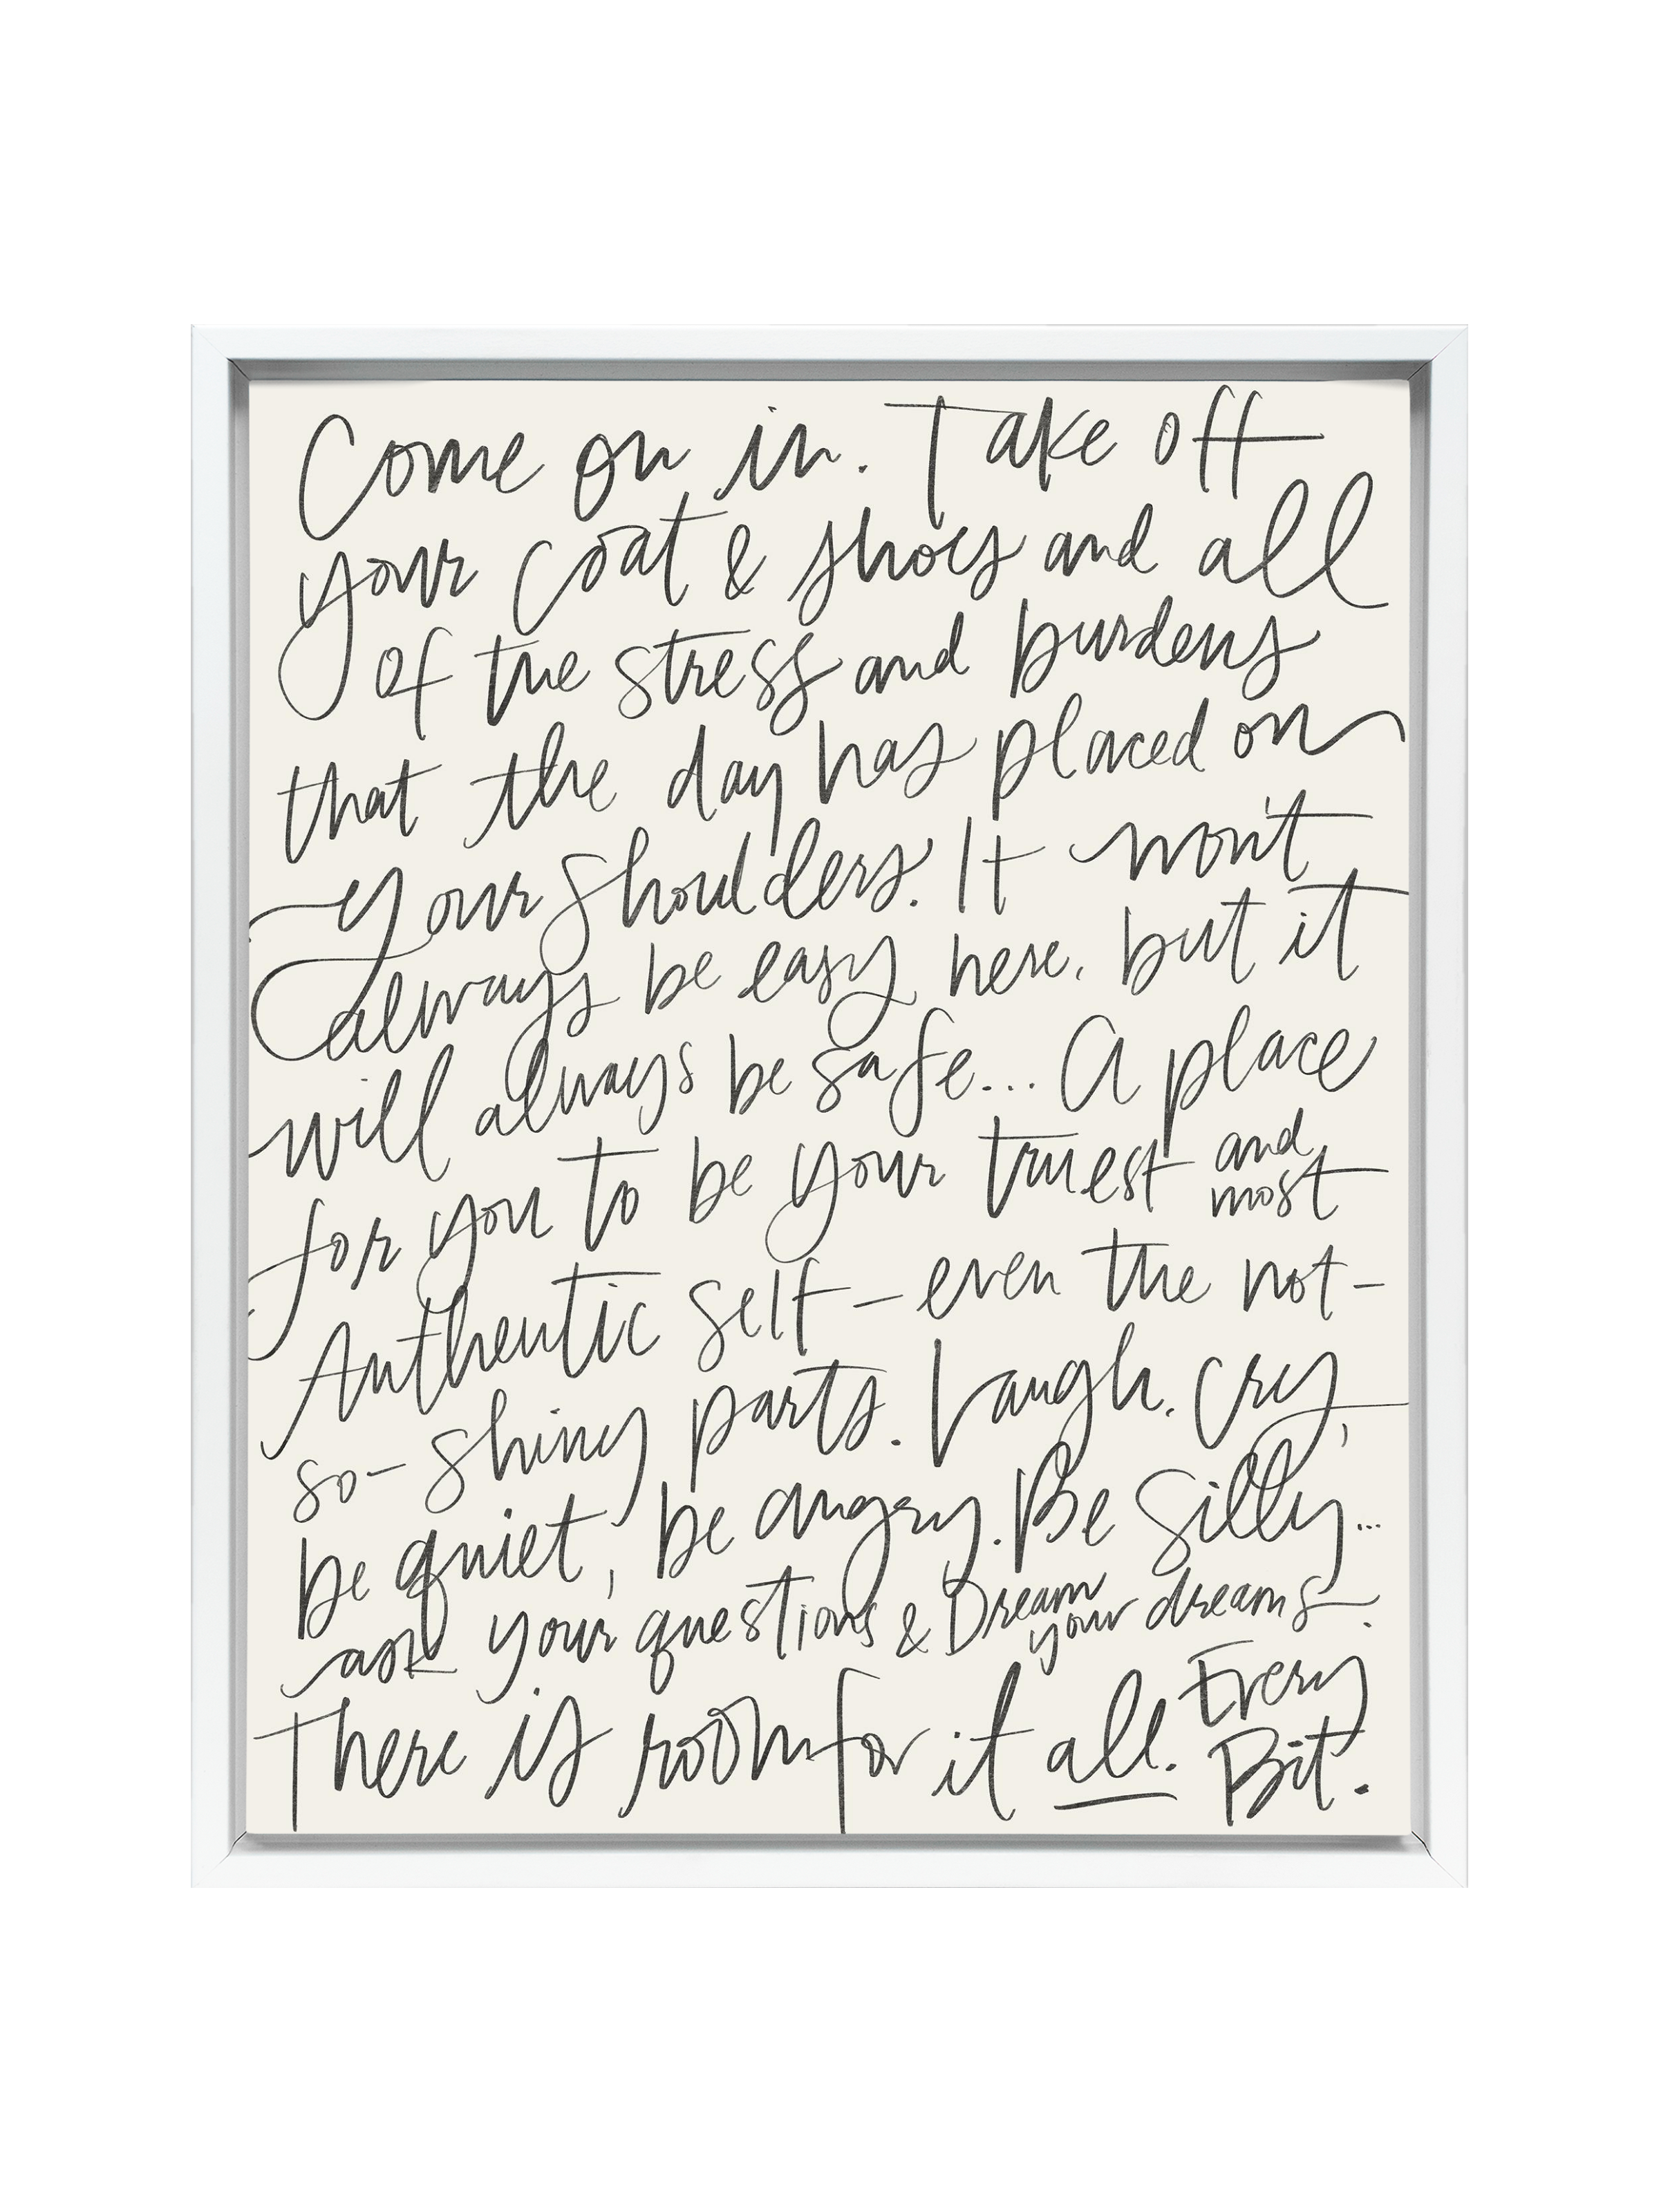 Come on in. Take off
your coat & shoes and all
of the stress and burdens
that the day has placed on
your shoulders. It won't
always be easy here, but it
will always be safe... A place
for you to be your truest and most
Authentic self - even the not-
so-shiny parts. Laugh, cry,
be quiet, be angry. Be silly...
ask your questions & Dream your dreams.
There is room for it all. Every Bit.